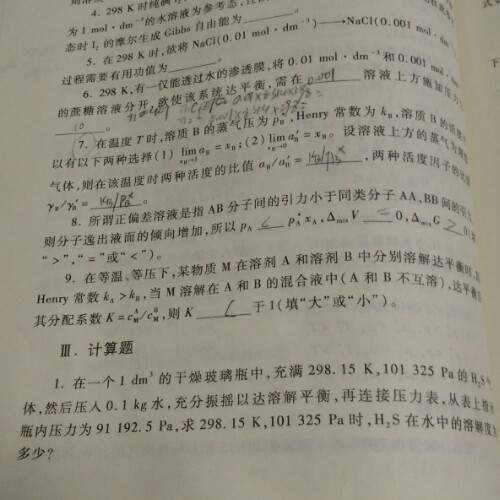 4. 298 K 时纯碘
为 1 mol·dm⁻³的水溶液为参考态,
态时 I₂ 的摩尔生成 Gibbs 自由能为
5. 在 298 K 时,欲将 NaCl(0.01 mol·dm⁻³) ⟶ NaCl(0.001 mol·
过程需要有用功值为
6. 298 K,有一仅能透过水的渗透膜,将 0.01 mol·dm⁻³ 和 0.001 mol·
的蔗糖溶液分开,欲使该系统达平衡,需在 0.001 溶液上方施加压力
10 。
7. 在温度 T 时,溶质 B 的蒸气压为 p_B*, Henry 常数为 k_B,溶质 B 的
以有以下两种选择 (1) lim a_B = x_B; (2) lim a_B' = x_B。设溶液上方的蒸气为理想
气体,则在该温度时两种活度的比值 a_B/a_B' = k_B/p_B* ,两种活度因子的比值
γ_B/γ_B' = k_B/p_B* 。
8. 所谓正偏差溶液是指 AB 分子间的引力小于同类分子 AA,BB 间的引力,
则分子逸出液面的倾向增加,所以 p_A < p_A* x_A, Δ_mix V > 0, Δ_mix G > 0(填
“>”,“=”或“<”)。
9. 在等温、等压下,某物质 M 在溶剂 A 和溶剂 B 中分别溶解达平衡时,
Henry 常数 k_A > k_B,当 M 溶解在 A 和 B 的混合液中(A 和 B 不互溶),达平衡
其分配系数 K = c_M^A/c_M^B,则 K < 于 1(填“大”或“小”)。
Ⅲ. 计算题
1. 在一个 1 dm³ 的干燥玻璃瓶中,充满 298.15 K,101 325 Pa 的 H₂S 气
体,然后压入 0.1 kg 水,充分振摇以达溶解平衡,再连接压力表,从表上指
瓶内压力为 91 192.5 Pa,求 298.15 K,101 325 Pa 时,H₂S 在水中的溶解度为
多少?